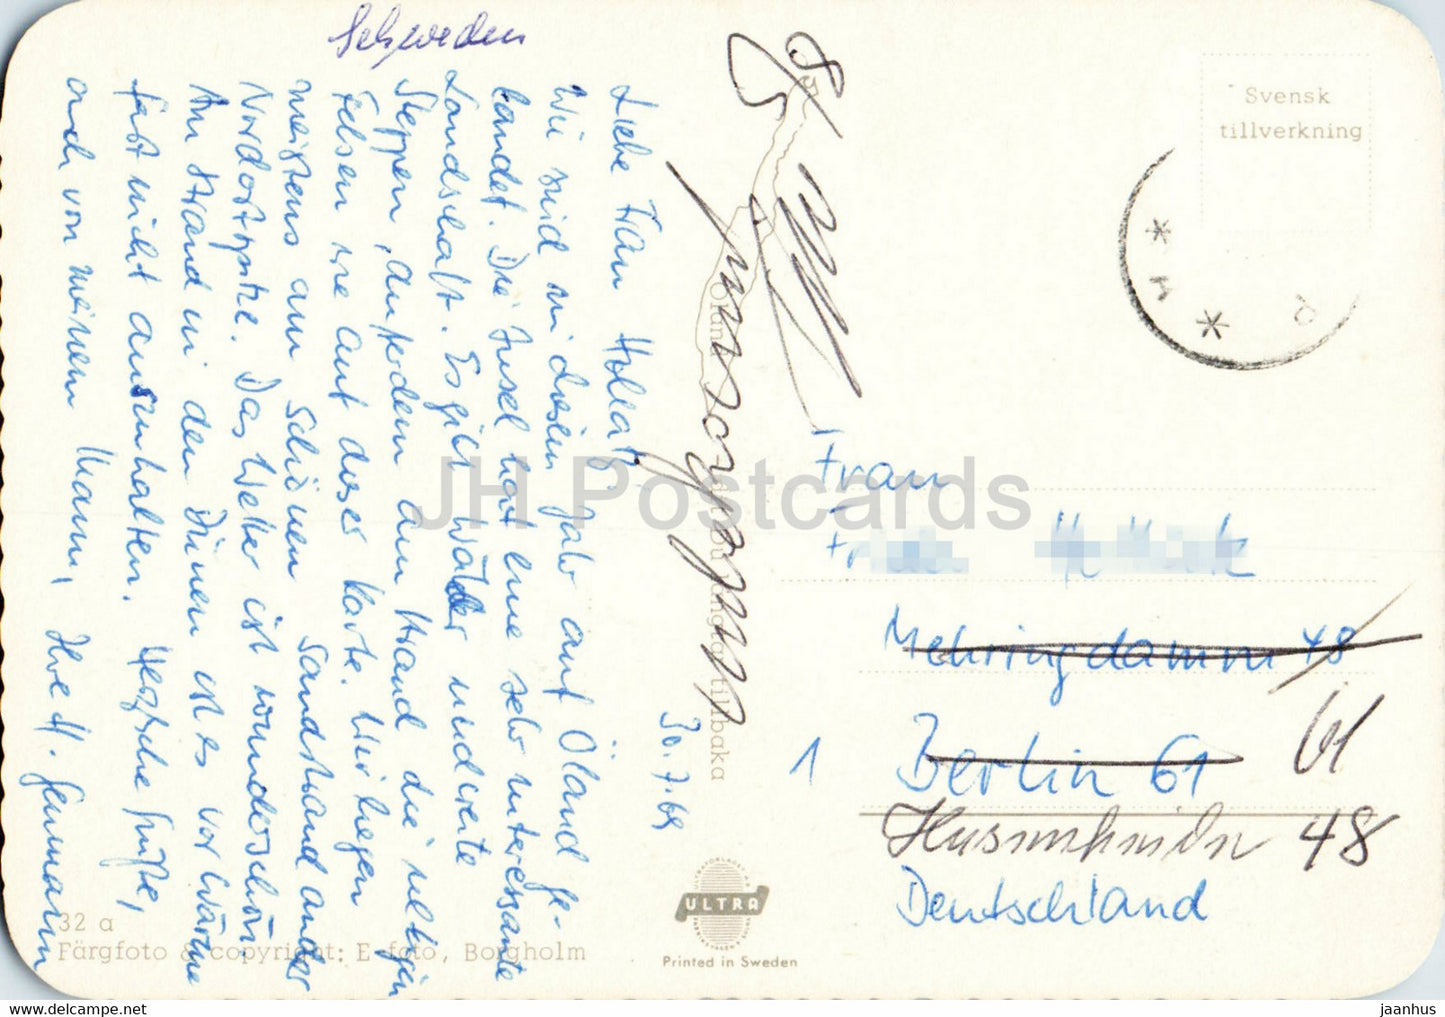 Schweden
30.7.69
Liebe Frau
Wir sind in diesem Jahr auf Öland ge-
landet. Die Insel hat eine sehr interessante
Landschaft. Es gibt Wälder und weite
Steppen, außerdem am Strand die selbigen
Felsen wie auf dieser Karte. Wir liegen
meistens am schönen Sandstrand an der
Nordostspitze. Das Wetter ist wunderschön
Am Strand in den Dünen ist es vor Wärme
fast nicht auszuhalten. Herzliche Grüße,
auch von meinem Mann, Ihre H.
Svensk
tillverkning
Frau
Mehringdamm 48
Berlin 61
61
48
Deutschland
1
Öland
tillbaka
ULTRA
Printed in Sweden
32 a
Färgfoto & copyright: E-foto, Borgholm
JH Postcards
HipPostcard.com
jaanhus